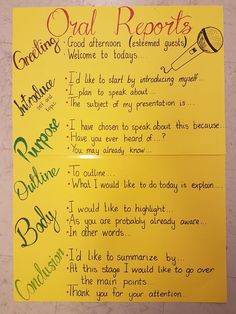 Oral Reports
Greeting
• Good afternoon (esteemed guests)
• Welcome to todays...
Introduce
self and topic
• I'd like to start by introducing myself...
• I plan to speak about...
• The subject of my presentation is...
Purpose
• I have chosen to speak about this because...
• Have you ever heard of...?
• You may already know...
Outline
• To outline...
• What I would like to do today is explain...
Body
• I would like to highlight...
• As you are probably already aware...
• In other words...
Conclusion
• I'd like to summarize by...
• At this stage I would like to go over
the main points
• Thank you for your attention...